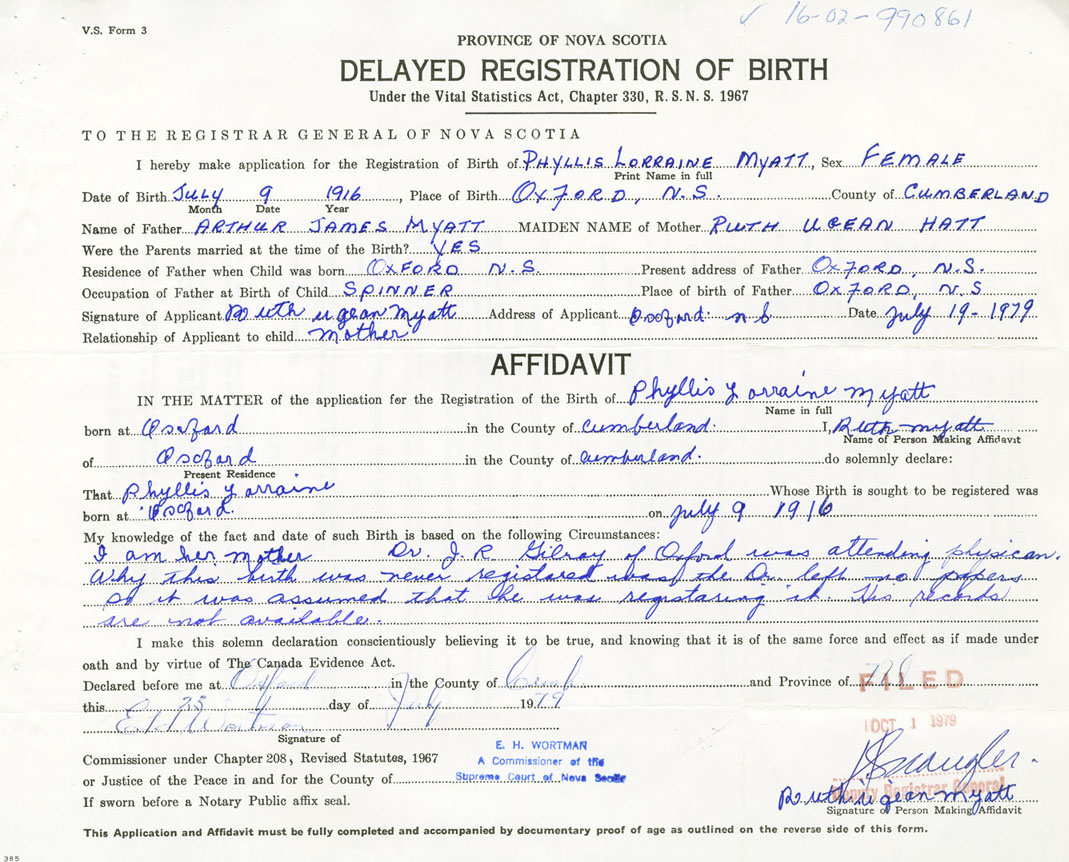 ✓ 16-02-990861
V.S. Form 3
PROVINCE OF NOVA SCOTIA
DELAYED REGISTRATION OF BIRTH
Under the Vital Statistics Act, Chapter 330, R.S.N.S. 1967
TO THE REGISTRAR GENERAL OF NOVA SCOTIA
I hereby make application for the Registration of Birth of PHYLLIS LORRAINE MYATT, Sex FEMALE
Print Name in full
Date of Birth JULY 9 1916, Place of Birth OXFORD, N.S. County of CUMBERLAND
Month Date Year
Name of Father ARTHUR JAMES MYATT MAIDEN NAME of Mother RUTH UGEAN HATT
Were the Parents married at the time of the Birth? YES
Residence of Father when Child was born OXFORD N.S. Present address of Father OXFORD, N.S.
Occupation of Father at Birth of Child SPINNER Place of birth of Father OXFORD, N.S
Signature of Applicant Ruth ugean Myatt Address of Applicant Oxford. n S Date July 19-1979
Relationship of Applicant to child mother
AFFIDAVIT
IN THE MATTER of the application for the Registration of the Birth of Phyllis Lorraine myatt
Name in full
born at Oxford in the County of Cumberland. I, Ruth myatt
Name of Person Making Affidavit
of Oxford in the County of Cumberland. do solemnly declare:
Present Residence
That Phyllis Lorraine Whose Birth is sought to be registered was
born at Oxford. on July 9 1916
My knowledge of the fact and date of such Birth is based on the following Circumstances:
I am her mother Dr. J. R Gilroy of Oxford was attending physican.
Why this birth was never registared was the Dr. left no papers
so it was assumed that he was registaring it. His records
are not available.
I make this solemn declaration conscientiously believing it to be true, and knowing that it is of the same force and effect as if made under
oath and by virtue of The Canada Evidence Act.
Declared before me at Oxford in the County of Cumb. and Province of N.S.
FILED
this 25 day of July 1979
OCT 1 1979
E H Wortman
Signature of
Commissioner under Chapter 208, Revised Statutes, 1967
E. H. WORTMAN
A Commissioner of the
Supreme Court of Nova Scotia
or Justice of the Peace in and for the County of
Deputy Registrar General
Ruth ugean myatt
If sworn before a Notary Public affix seal.
Signature of Person Making Affidavit
This Application and Affidavit must be fully completed and accompanied by documentary proof of age as outlined on the reverse side of this form.
385